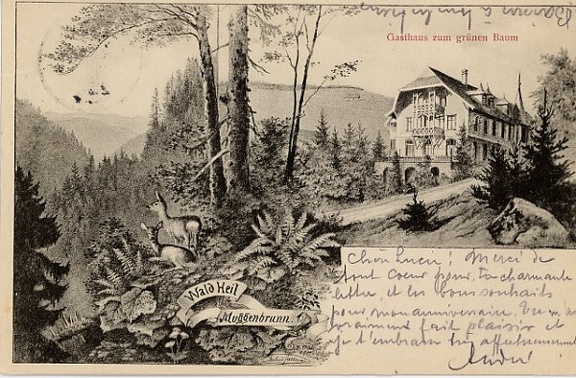 Gasthaus zum grünen Baum
Wald Heil
Muggenbrunn.
Chère Lucie! Merci de
tout cœur pour ta charmante
lettre, et les bons souhaits
pour mon anniversaire.
vraiment fait plaisir et
je t'embrasse